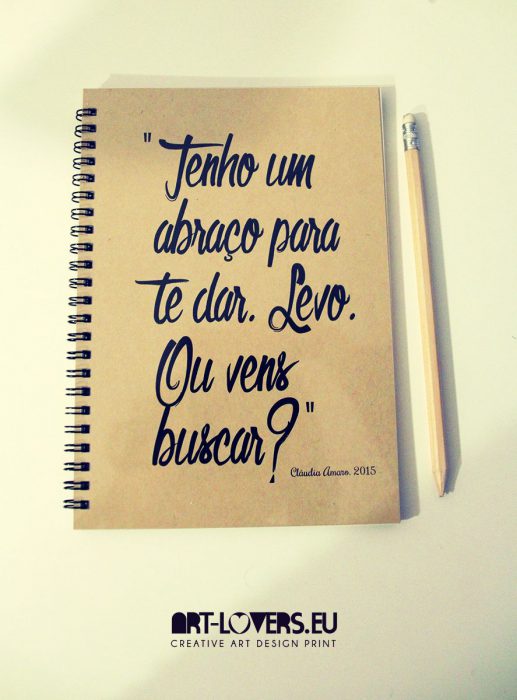 "Tenho um
abraço para
te dar. Levo.
Ou vens
buscar?"
Cláudia Amaro. 2015
ART-LOVERS.EU
CREATIVE ART DESIGN PRINT